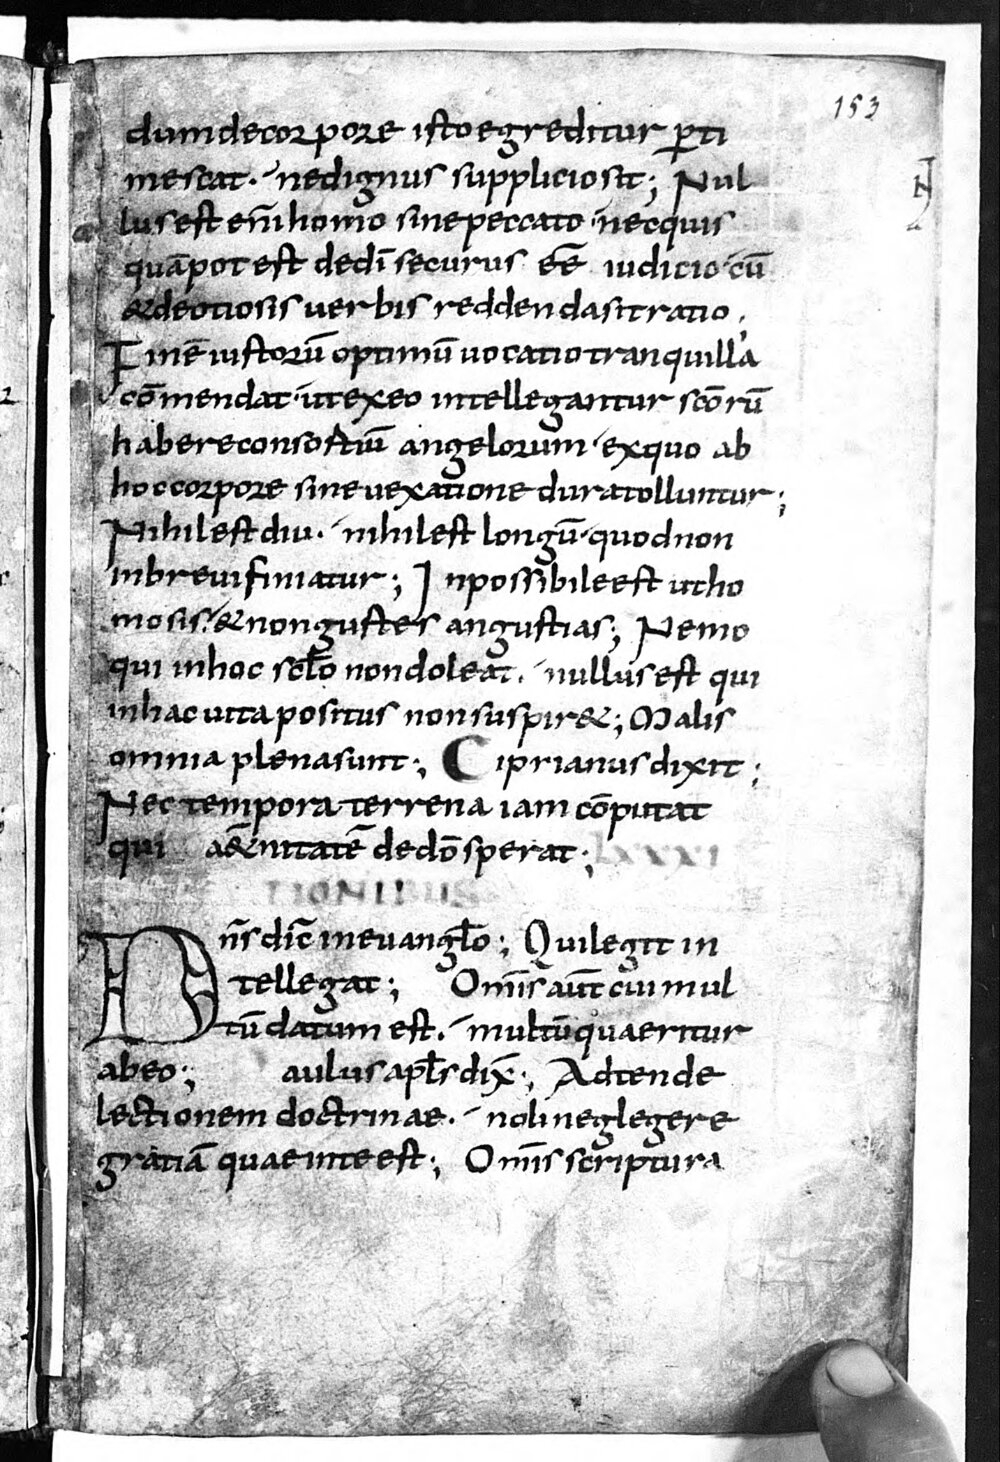 153
dum de corpore isto egreditur ꝑti
mescat · ne dignus supplicio sit ; Nul
lus est eni̅ homo sine peccato · nec quis
qua̅ potest de di̅ securus ee̅ iudicio · cu̅
& de otiosis verbis reddenda sit ratio .
Fine̅ iustoru̅ optimu̅ uocatio tranquilla
co̅mendat · ut ex eo intellegantur sc̅oru̅
habere consortiu̅ angelorum · ex quo ab
hoc corpore sine uexatione dura tolluntur ;
Nihil est diu · nihil est longu̅ · quod non
in breui finiatur ; Inpossibile est ut ho
mo sis · & non gustes angustias ; Nemo
qui in hoc scl̅o non doleat · nullus est qui
in hac uita positus non suspir& ; Malis
omnia plena sunt ; Ciprianus dixit ;
Nec tempora terrena iam co̅putat
qui a&̅nitate̅ de do̅ sperat ; LXXXI
TIONIBUS
Dn̅s dic̅ in euangl̅o ; Qui legit in
tellegat ; Omi̅s aut̅ cui mul
tu̅ datum est · multu̅ quaeritur
ab eo ; aulus apl̅s dix̅ ; Adtende
lectionem doctrinae · noli neglegere
gratia̅ quae in te est ; Omi̅s scriptura